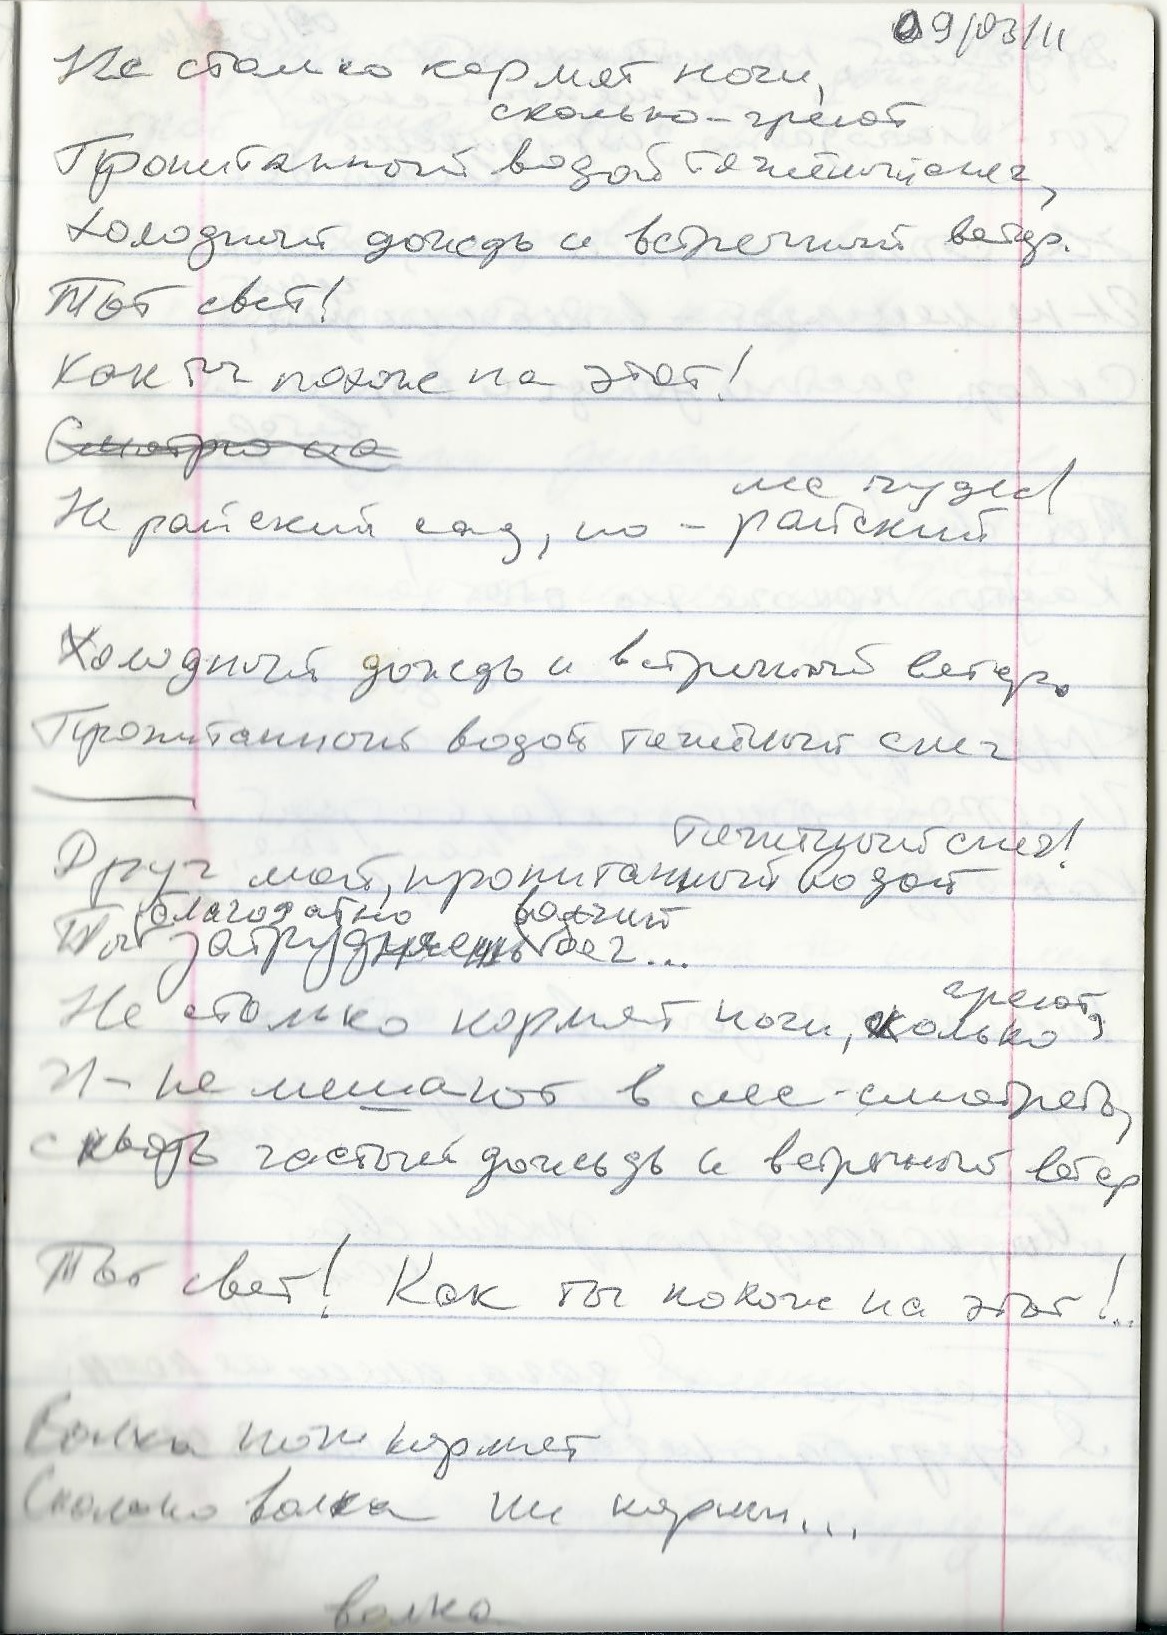 09/03/11
Не столько кормят ноги,
сколько - греют
Пропитанный водой тяжёлый снег,
Холодный дождь и встречный ветер.
Тот свет!
Как ты похож на этот!
Смотрю на
Не райский сад, но - райский
лес
Холодный дождь и встречный ветер,
Пропитанный водой тяжёлый снег
тяжёлый снег!
Друг мой, пропитанный водой
благодатно волчий
Ты затрудняешь бег...
Не столько кормят ноги, сколько
греют,
И - не мешают в лес - смотреть,
сквозь частый дождь и встречный ветер
Тот свет! Как ты похож на этот!..
Волка ноги кормят
Сколько волка ни корми...
волка